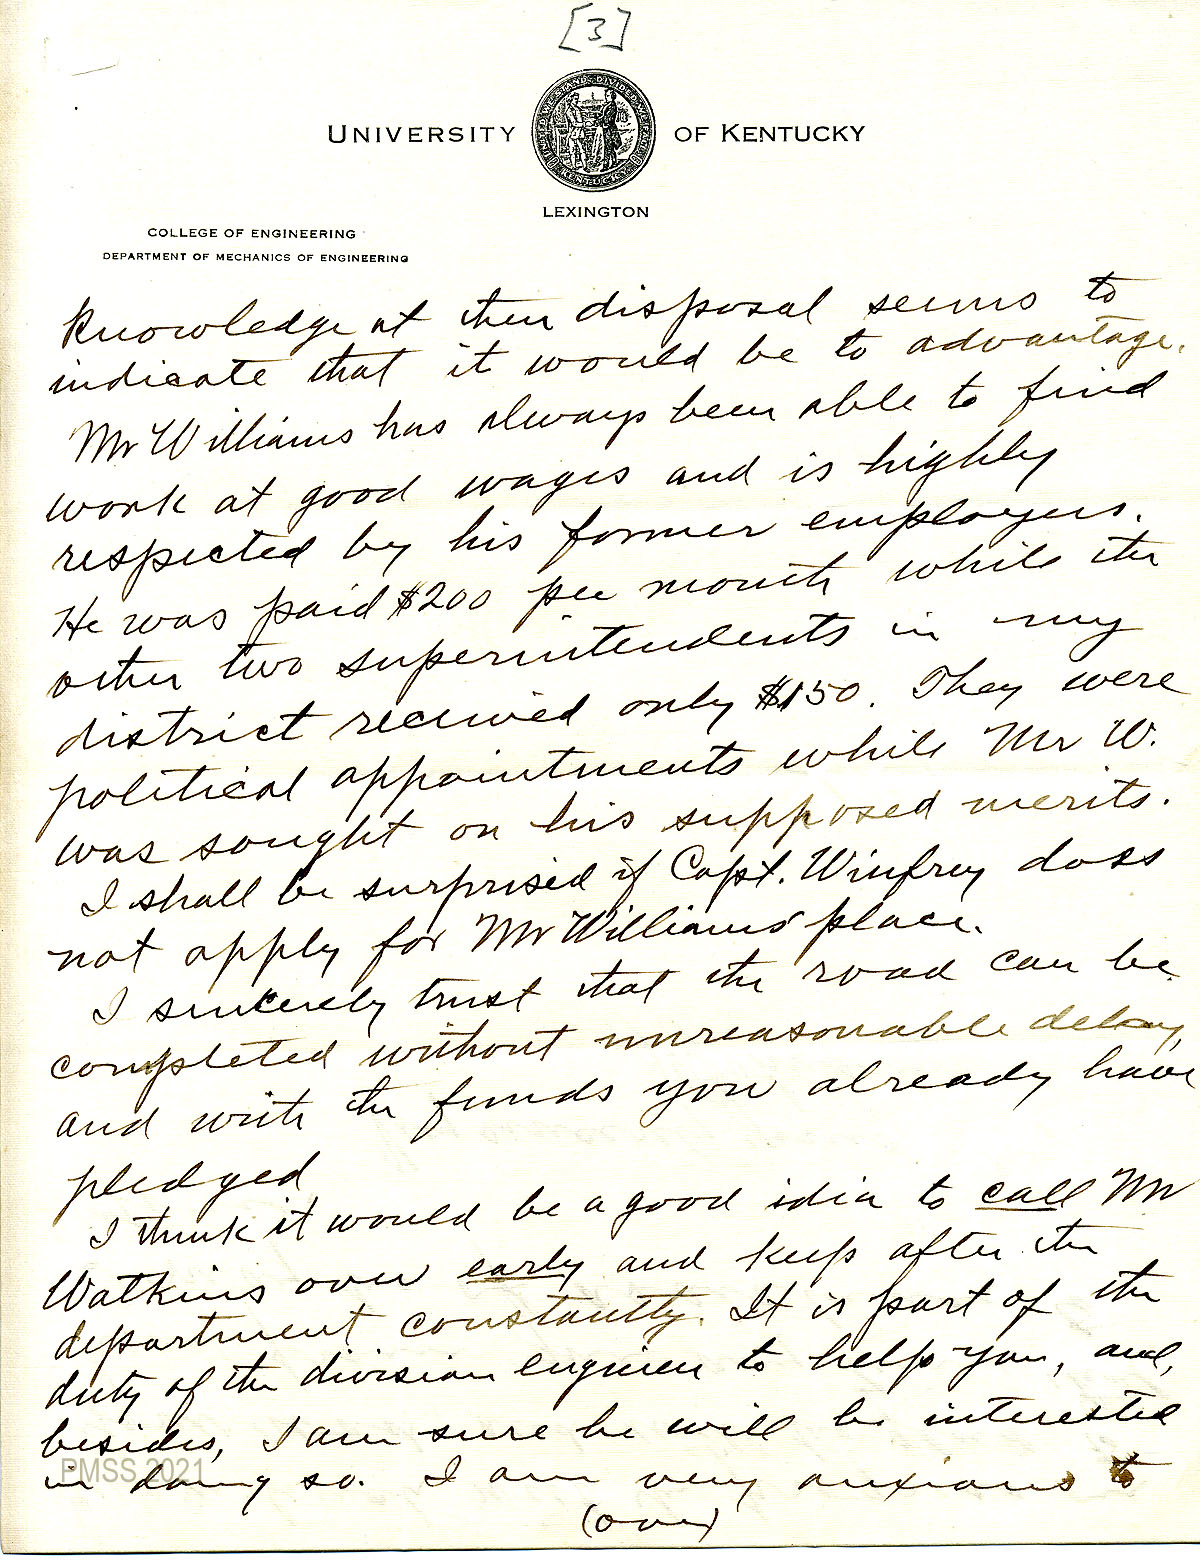 [3]
UNIVERSITY OF KENTUCKY
UNITED WE STAND, DIVIDED WE FALL
KENTUCKY
LEXINGTON
COLLEGE OF ENGINEERING
DEPARTMENT OF MECHANICS OF ENGINEERING
knowledge at their disposal seems to
indicate that it would be to advantage.
Mr Williams has always been able to find
work at good wages and is highly
respected by his former employers.
He was paid $200 per month while the
other two superintendents in my
district received only $150. They were
political appointments while Mr W.
was sought on his supposed merits.
I shall be surprised if Capt. Winfrey does
not apply for Mr Williams' place.
I sincerely trust that the road can be
completed without unreasonable delay,
and with the funds you already have
pledged
I think it would be a good idea to call Mr
Watkins over early and keep after the
department constantly. It is part of the
duty of the division engineer to help you, and,
besides, I am sure he will be interested
in doing so. I am very anxious to
(over)
PMSS 2021